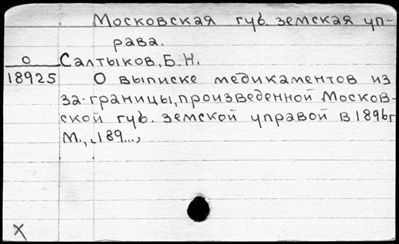 Московская губ. земская уп-
рава.
О Салтыков, Б. Н.
18925 О выписке медикаментов из
за-границы, произведенной Москов-
ской губ. земской управой в 1896г
М., 189...,
X